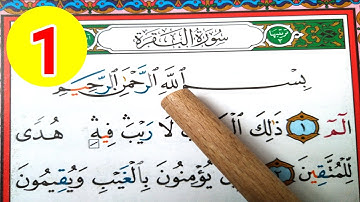 1
سُورَةُ الْبَقَرَةِ
بِسْمِ اللَّهِ الرَّحْمَٰنِ الرَّحِيمِ
الٓمٓ ۝١ ذَٰلِكَ لَا رَيْبَ ۛ فِيهِ ۛ هُدًى
لِلْمُتَّقِينَ يُؤْمِنُونَ بِالْغَيْبِ وَيُقِيمُونَ